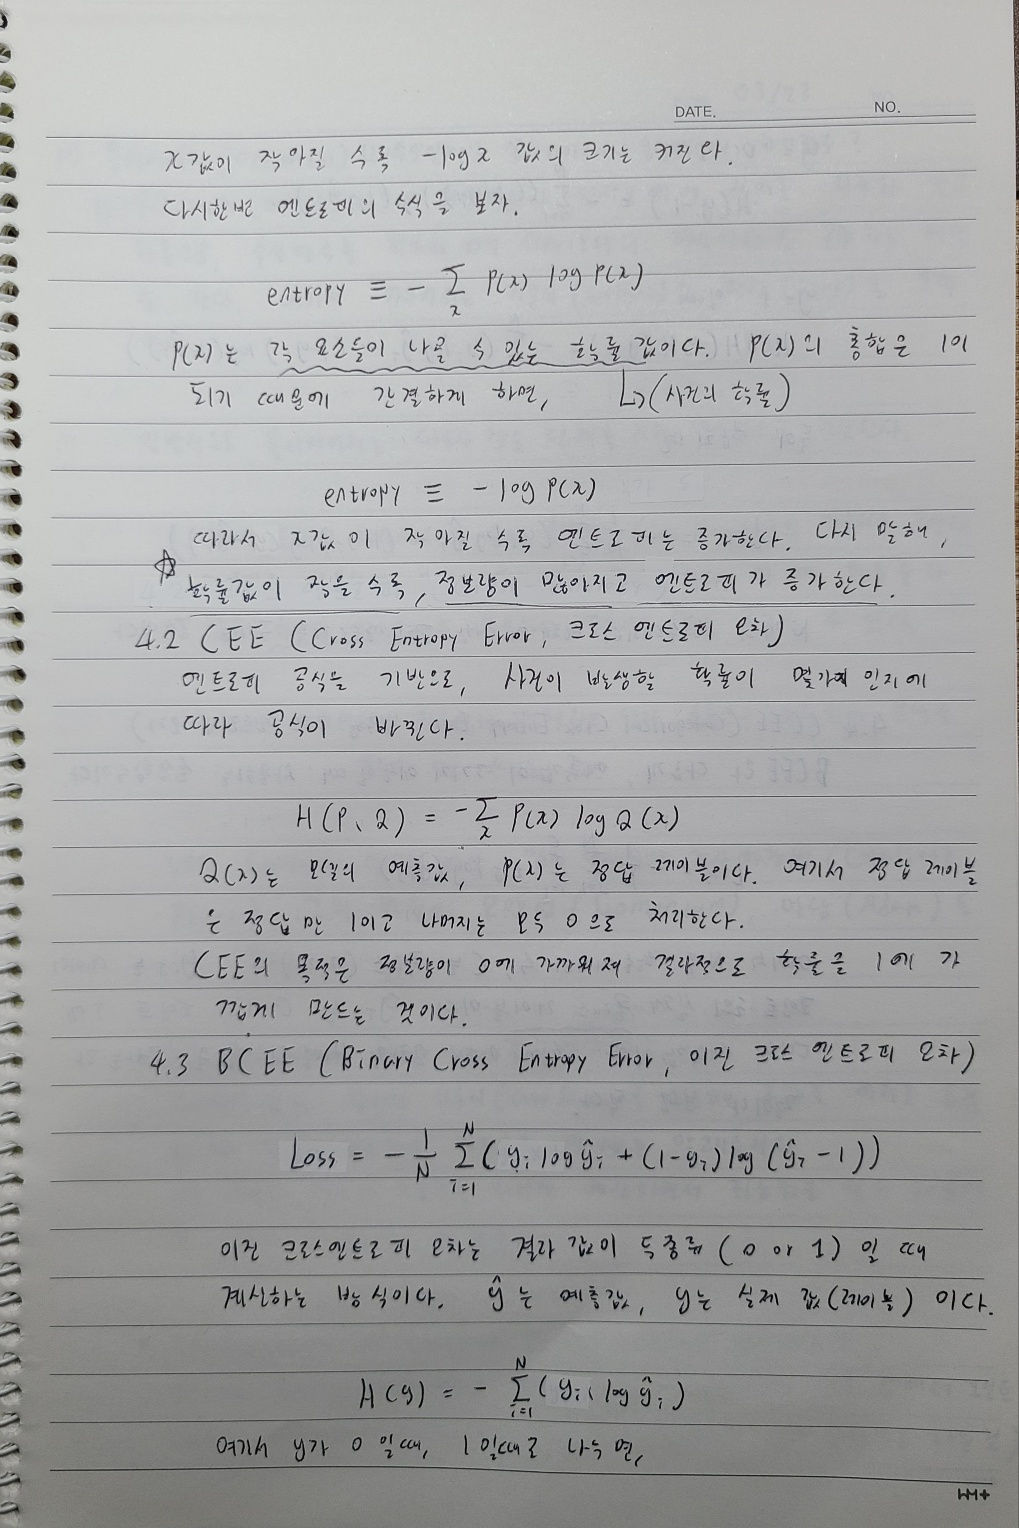 DATE. NO.
x값이 작아질 수록 -log x 값의 크기는 커진다.
다시한번 엔트로피의 수식을 보자.
entropy ≡ - Σ_x P(x) log P(x)
P(x)는 각 요소들이 나올 수 있는 확률값이다. P(x)의 통합은 1이
되기 때문에 간결하게 하면, ↳(사건의 확률)
entropy ≡ - log P(x)
따라서 x값이 작아질 수록 엔트로피는 증가한다. 다시 말해,
☆ 확률값이 작을 수록, 정보량이 많아지고 엔트로피가 증가한다.
4.2 CEE (Cross Entropy Error, 크로스 엔트로피 오차)
엔트로피 공식을 기반으로, 사건이 발생할 확률이 몇가지 인지에
따라 공식이 바뀐다.
H(P, Q) = - Σ_x P(x) log Q(x)
Q(x)는 모델의 예측값, P(x)는 정답 레이블이다. 여기서 정답 레이블
은 정답 만 1이고 나머지는 모두 0으로 처리한다.
CEE의 목적은 정보량이 0에 가까워져 결과적으로 확률을 1에 가
깝게 만드는 것이다.
4.3 BCEE (Binary Cross Entropy Error, 이진 크로스 엔트로피 오차)
Loss = - 1/N Σ_{i=1}^{N} (y_i log ŷ_i + (1-y_i) log (ŷ_i - 1))
이진 크로스엔트로피 오차는 결과 값이 두종류 (0 or 1) 일 때
계산하는 방식이다. ŷ는 예측값, y는 실제 값(레이블) 이다.
H(y) = - Σ_{i=1}^{N} (y_i log ŷ_i)
여기서 y가 0 일때, 1 일때로 나누면,